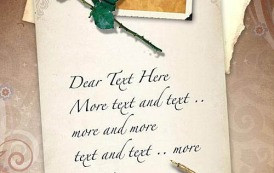 Dear Text Here
More text and text ..
more and more
text and text .. more